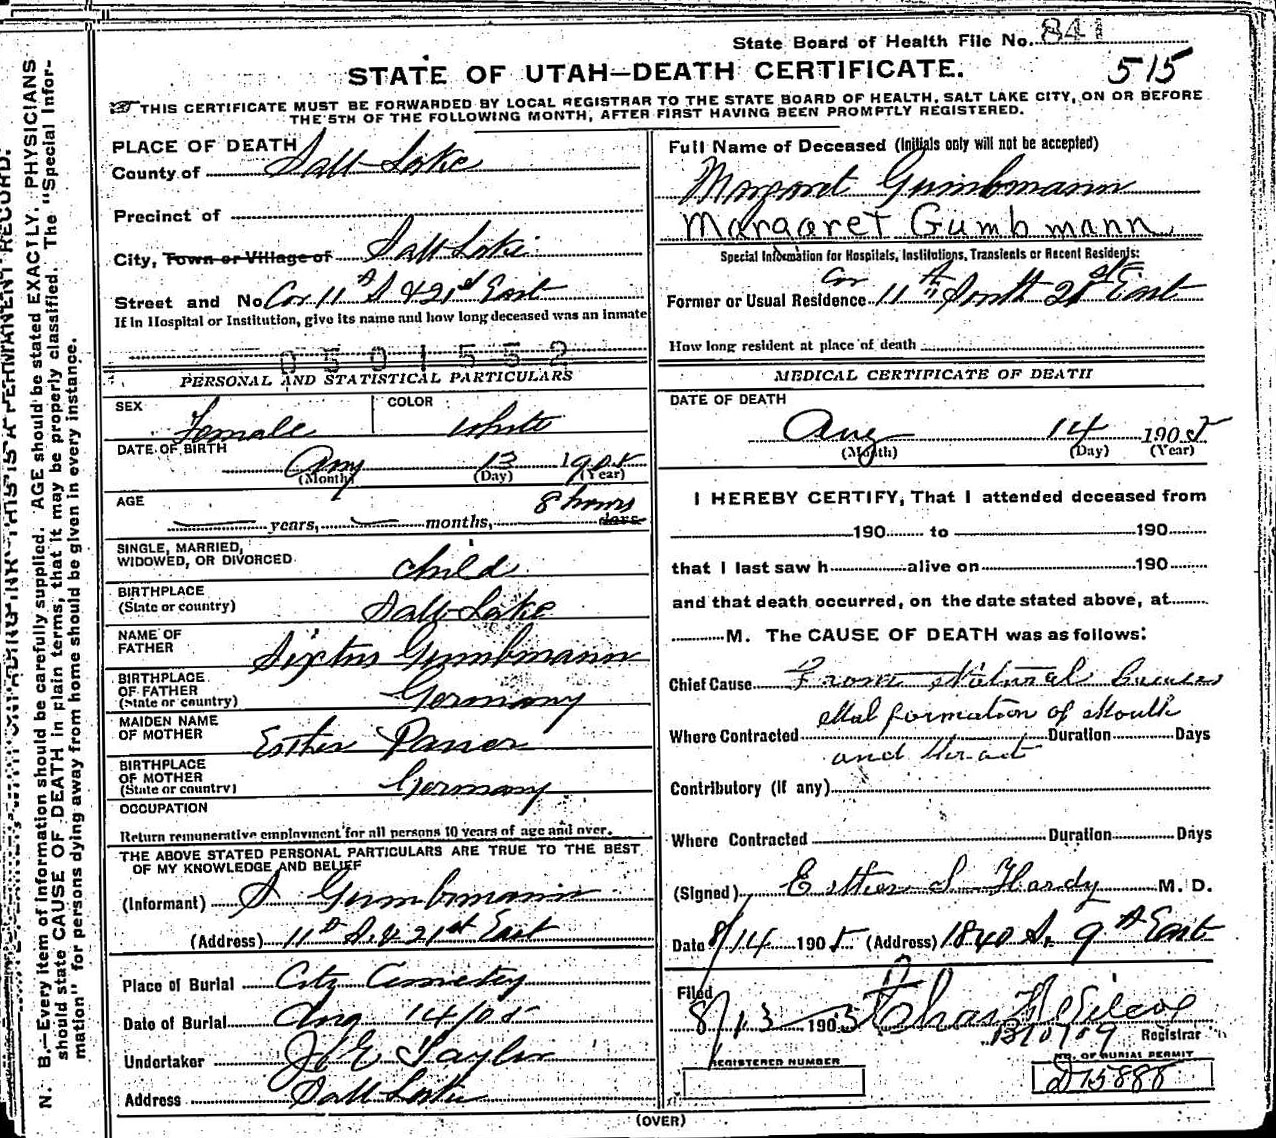 State Board of Health File No. 841
515
STATE OF UTAH—DEATH CERTIFICATE.
THIS CERTIFICATE MUST BE FORWARDED BY LOCAL REGISTRAR TO THE STATE BOARD OF HEALTH, SALT LAKE CITY, ON OR BEFORE
THE 5TH OF THE FOLLOWING MONTH, AFTER FIRST HAVING BEEN PROMPTLY REGISTERED.
PLACE OF DEATH
County of Salt Lake
Precinct of
City, Town or Village of Salt Lake
Street and No. Cor 11th S & 21st East
If in Hospital or Institution, give its name and how long deceased was an inmate
0501552
Full Name of Deceased (Initials only will not be accepted)
Margaret Gumbmann
Margaret Gumbmann
Special Information for Hospitals, Institutions, Transients or Recent Residents:
Former or Usual Residence Cor 11th South 21st East
How long resident at place of death
PERSONAL AND STATISTICAL PARTICULARS
SEX Female COLOR White
DATE OF BIRTH
Aug 13 1905
(Month) (Day) (Year)
AGE 8 hours
years, months, days
SINGLE, MARRIED,
WIDOWED, OR DIVORCED child
BIRTHPLACE
(State or country) Salt Lake
NAME OF
FATHER Sixtus Gumbmann
BIRTHPLACE
OF FATHER
(State or country) Germany
MAIDEN NAME
OF MOTHER Esther
BIRTHPLACE
OF MOTHER
(State or country) Germany
OCCUPATION
Return remunerative employment for all persons 10 years of age and over.
THE ABOVE STATED PERSONAL PARTICULARS ARE TRUE TO THE BEST
OF MY KNOWLEDGE AND BELIEF
(Informant) S Gumbmann
(Address) 11th S. & 21st East
Place of Burial City Cemetery
Date of Burial Aug 14/05
Undertaker Taylor
Address Salt Lake
MEDICAL CERTIFICATE OF DEATH
DATE OF DEATH
Aug 14 1905
(Month) (Day) (Year)
I HEREBY CERTIFY, That I attended deceased from
190 to 190
that I last saw h alive on 190
and that death occurred, on the date stated above, at
M. The CAUSE OF DEATH was as follows:
Chief Cause From Natural Causes
Mal formation of Mouth
Where Contracted Duration Days
and throat
Contributory (if any)
Where Contracted Duration Days
(Signed) Esther S Hardy M. D.
Date 8/14 1905 (Address) 1840 S. 9th East
Filed
8/13 1903
Registrar
REGISTERED NUMBER
NO. OF BURIAL PERMIT
D15888
(OVER)
N. B.—Every item of information should be carefully supplied. AGE should be stated EXACTLY. PHYSICIANS
should state CAUSE OF DEATH in plain terms, that it may be properly classified. The "Special Infor-
mation" for persons dying away from home should be given in every instance.
THIS IS A PERMANENT RECORD.